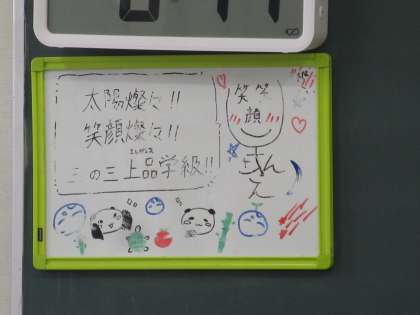 太陽燦々!!
笑顔燦々!!
エレガンス
三の三上品学級!!
笑 笑
顔
さん
え